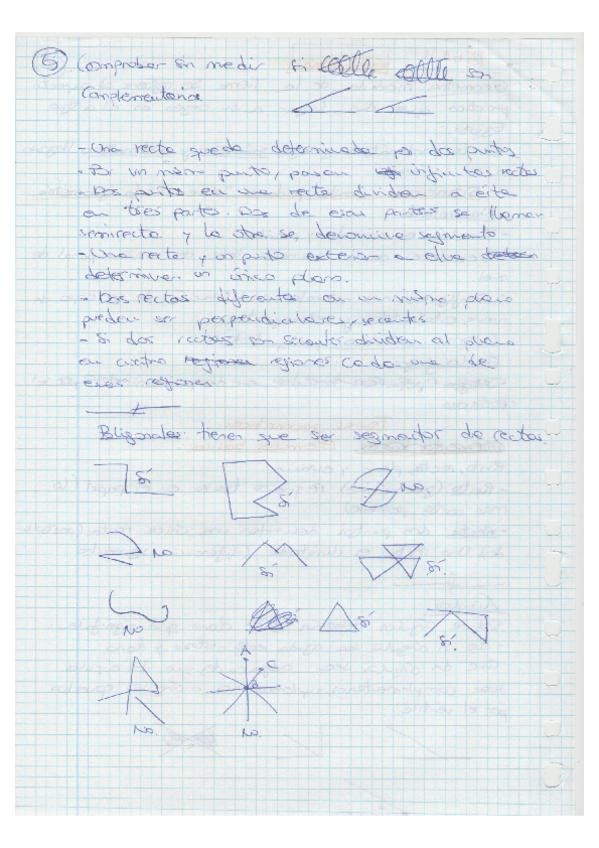 5 Comprobar sin medir si son
Complementarios
- Una recta queda determinada por dos puntos
- Por un mismo punto, pasan infinitas rectas
- Dos puntos en una recta dividen a esta
en tres partes. Dos de esas partes se llaman
semirecta y la otra se denomina segmento
- Una recta y un punto exterior a ella
determinan un único plano.
- Dos rectas diferentes en un mismo plano
pueden ser perpendiculares, secantes
- Si dos rectas son secantes dividen al plano
en cuatro regiones cada una de
esas regiones
tienen que ser segmentos de rectas.
Sí
Sí
No
No
Sí
Sí.
No
Sí
Sí.
A
C
No.
No.